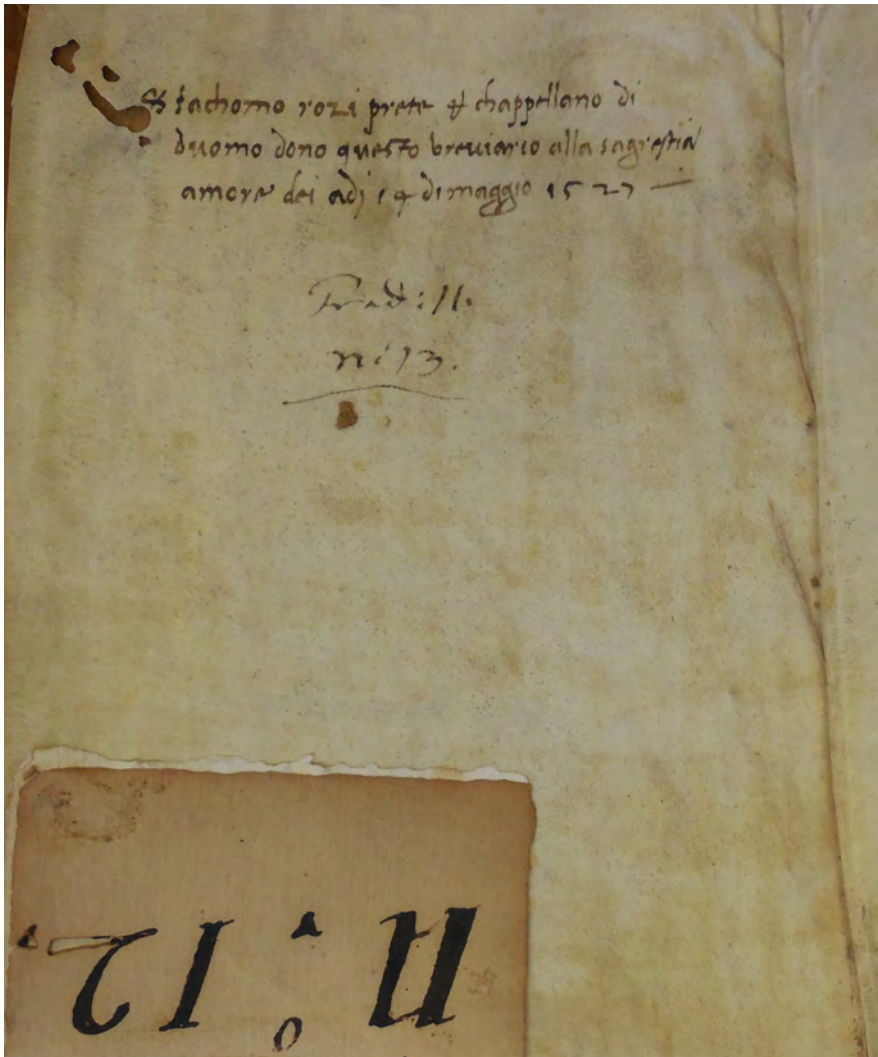 Jachomo rozi prete et chappellano di
duomo dono questo breviario alla sagrestia
amore dei adi 14 di maggio 1527 —
n: 13.
N:º 12.